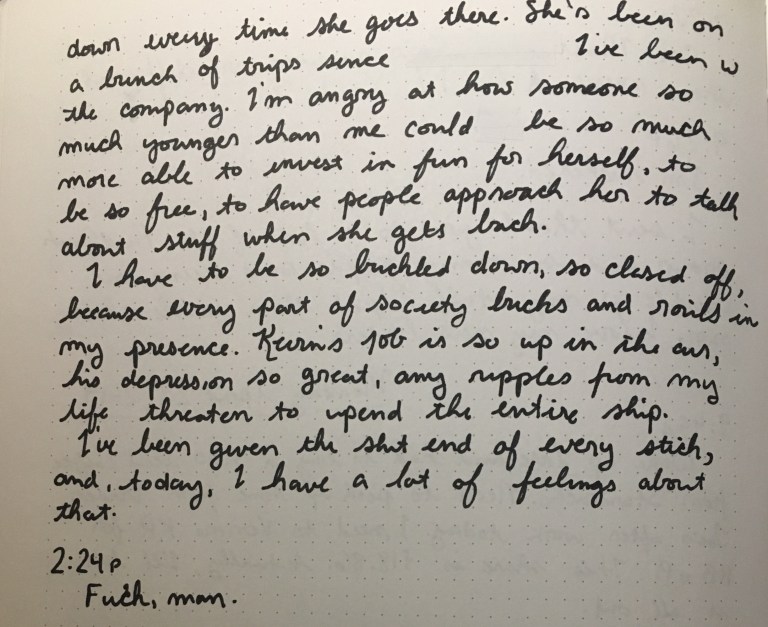 down every time she goes there. She's been on
a bunch of trips since I've been w
the company. I'm angry at how someone so
much younger than me could be so much
more able to invest in fun for herself, to
be so free, to have people approach her to talk
about stuff when she gets back.
I have to be so buckled down, so closed off,
because every part of society bucks and roils in
my presence. Kevin's job is so up in the air,
his depression so great, any ripples from my
life threaten to upend the entire ship.
I've been given the shit end of every stick,
and, today, I have a lot of feelings about
that.
2:24p
Fuck, man.